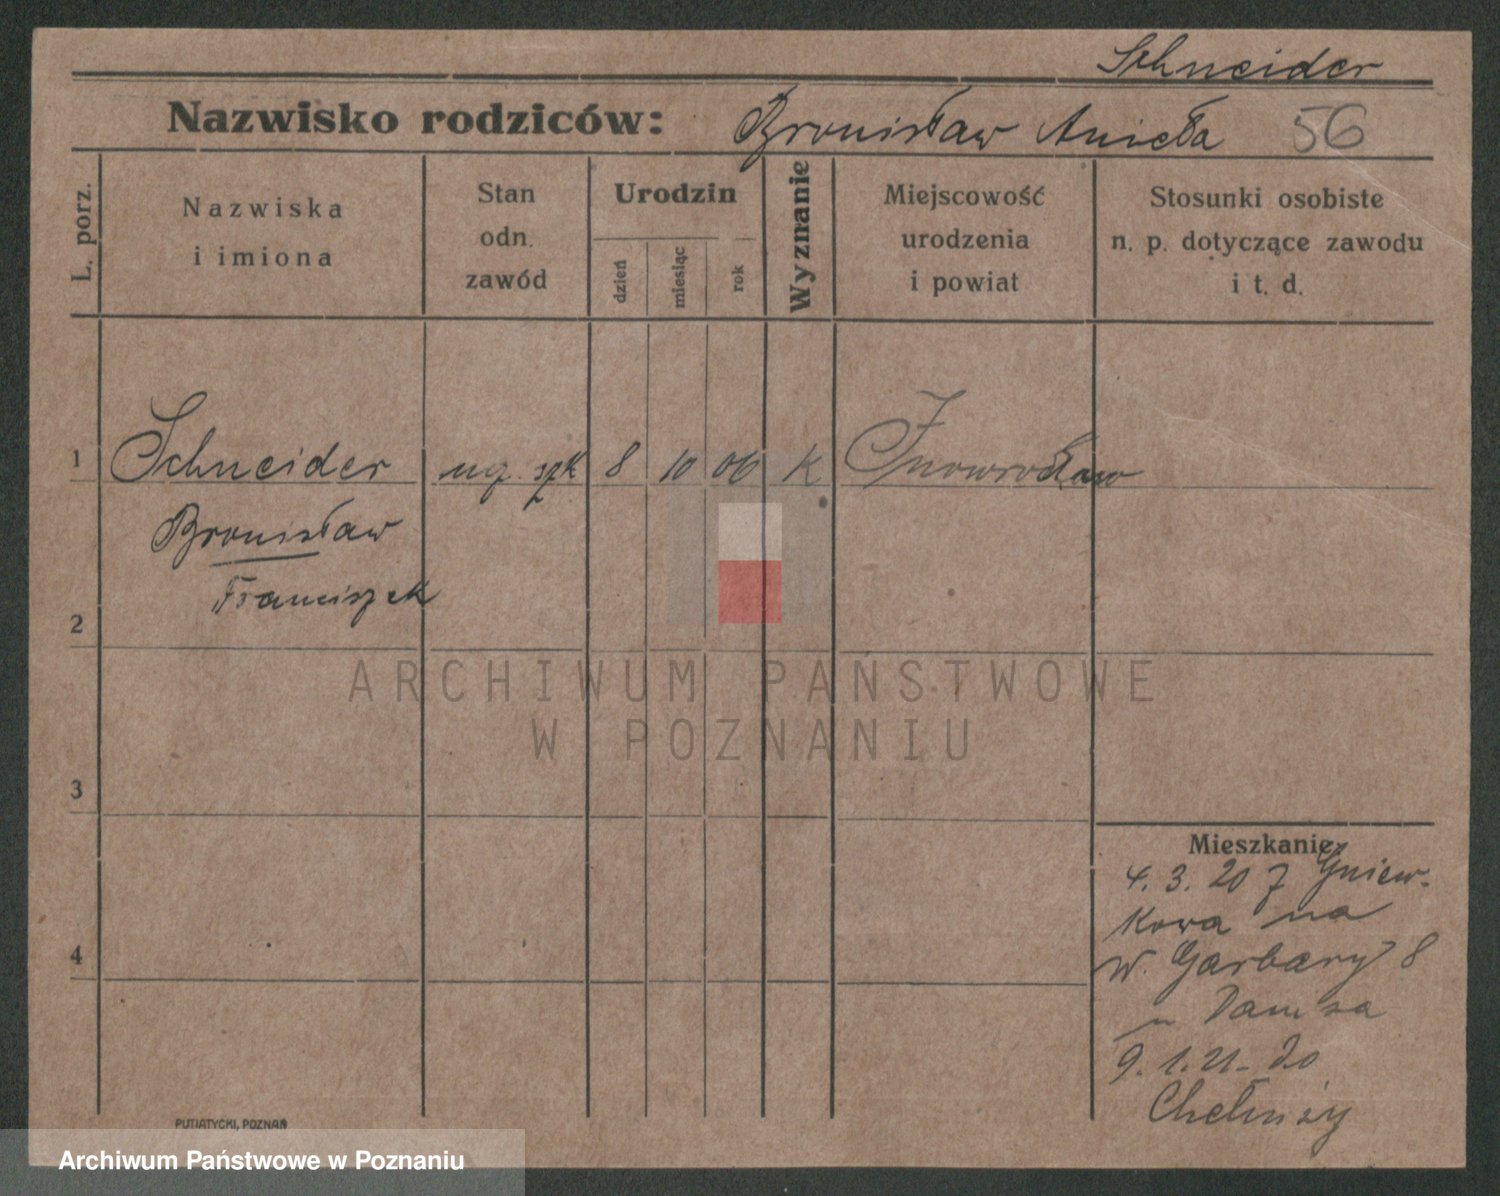 Schneider
Nazwisko rodziców: Bronisław Aniela 56
L. porz.
Nazwiska
i imiona
Stan
odn.
zawód
Urodzin
dzień
miesiąc
rok
Wyznanie
Miejscowość
urodzenia
i powiat
Stosunki osobiste
n. p. dotyczące zawodu
i t. d.
1 Schneider ucz. szk 8 10 06 K Inowrocław
Bronisław
Franciszek
2
ARCHIWUM PAŃSTWOWE
W POZNANIU
3
4
Mieszkanie
4. 3. 20 z Gniew-
kowa na
W. Garbary 8
u
9. 1. 21 - do
Chełmży
PUTIATYCKI, POZNAŃ
Archiwum Państwowe w Poznaniu